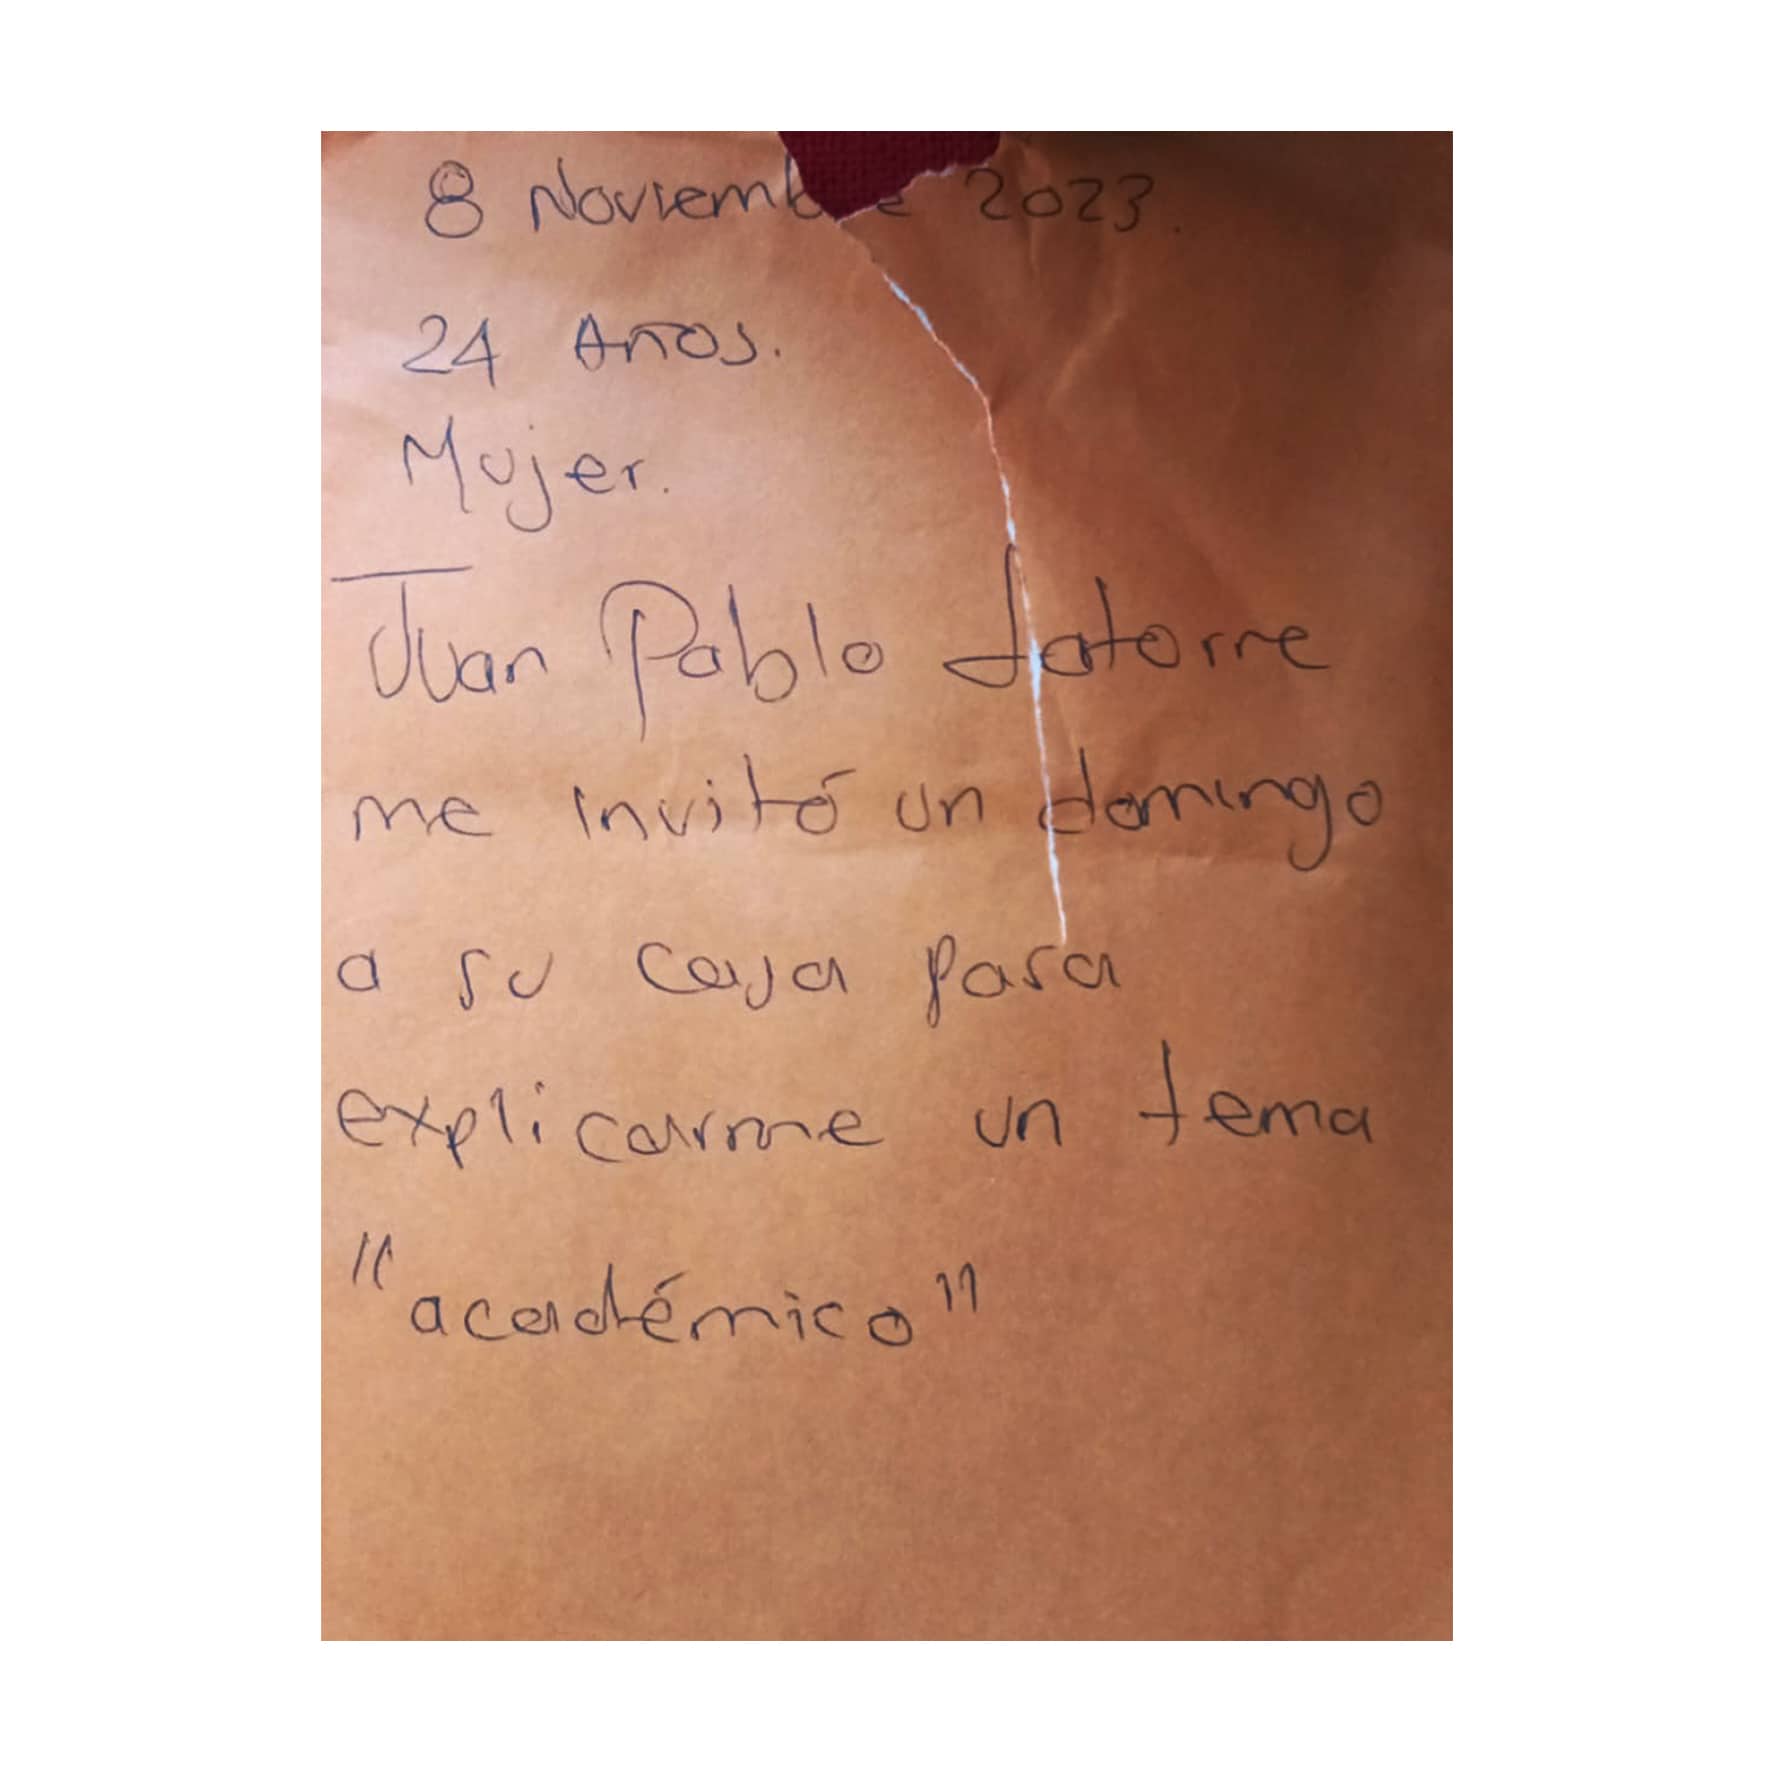 8 Noviembre 2023.
24 Años.
Mujer.
Juan Pablo Latorre
me invitó un domingo
a su casa para
explicarme un tema
"académico"